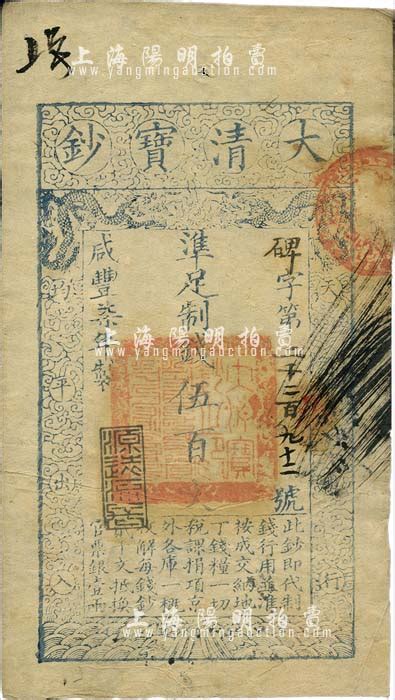 上海陽明拍賣
www.yangmingauction.com
大清寶鈔
碑字第
千二百九十二號
準足制錢伍百文
咸豐柒年製
此鈔即代制
錢行用並准
按成交納地
丁錢糧一切
稅課捐項京
外各庫一概
收解每錢鈔
貳千文抵換
官票銀壹兩
天
行
平
出入
上海陽明拍賣
www.yangmingauction.com
上海陽明拍賣
www.yangmingauction.com